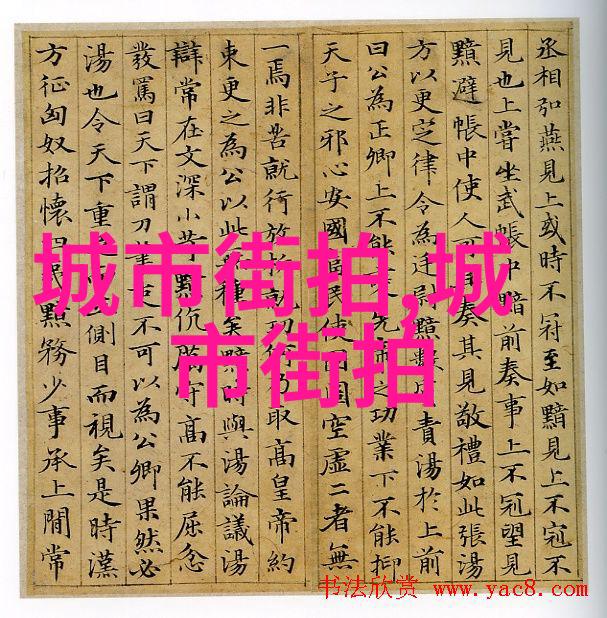 丞相弘燕見上或時不冠至如黯見上不冠不
見也上嘗坐武帳中黯前奏事上不冠望見
黯避帳中使人可其奏其見敬禮如此張湯
方以更定律令為廷尉黯數質責湯於上前
曰公為正卿上不能先帝之功業下不能抑
天子之邪心安國富民使囹圄空虛二者無
一焉非苦就行放析就功何乃取高皇帝約
束更之為公以此種矣黯時與湯論議湯
辯常在文深小苛黯伉厲守高不能屈忿
發罵曰天下謂刀筆吏不可以為公卿果然必
湯也令天下重足側目而視矣是時漢
方征匈奴招懷四夷黯務少事承上間常
城市街拍,城
市街拍
书法欣赏 www.yac8.com